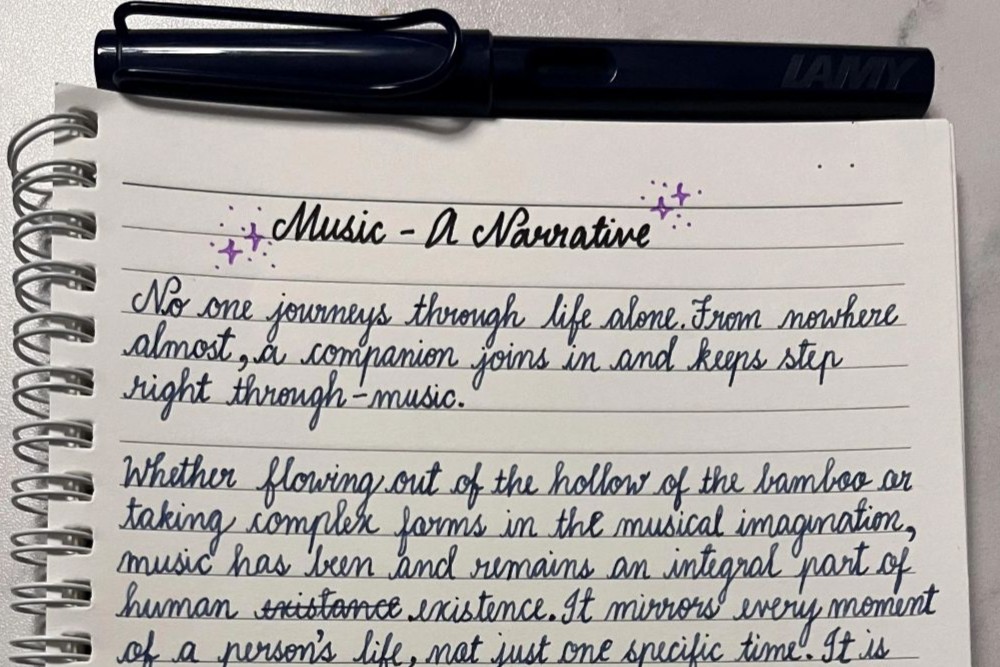 LAMY
Music - A Narrative
No one journeys through life alone. From nowhere
almost, a companion joins in and keeps step
right through - music.
Whether flowing out of the hollow of the bamboo or
taking complex forms in the musical imagination,
music has been and remains an integral part of
human existance existence. It mirrors every moment
of a person's life, not just one specific time. It is